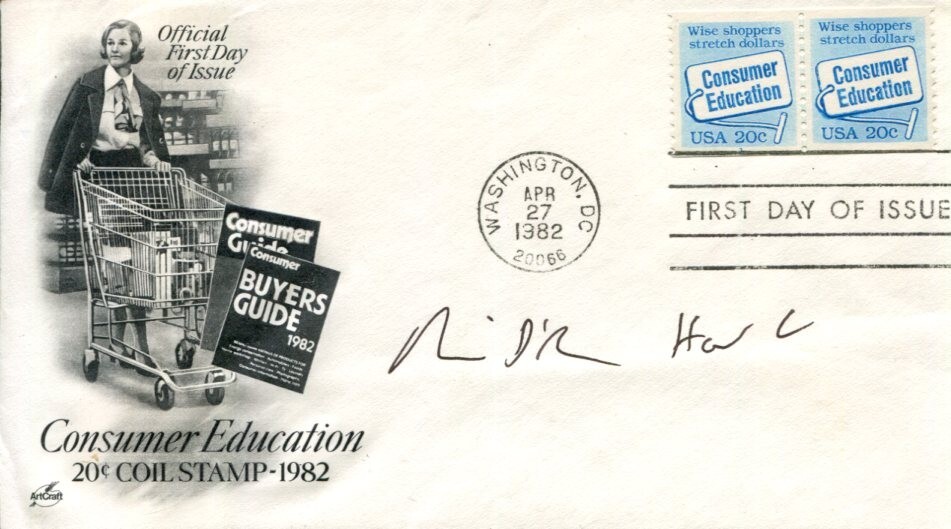 Official
First Day
of Issue
Wise shoppers
stretch dollars
Consumer
Education
USA 20c
Wise shoppers
stretch dollars
Consumer
Education
USA 20c
WASHINGTON, DC
APR
27
1982
20066
FIRST DAY OF ISSUE
Consumer
Guide
Consumer
BUYERS
GUIDE
1982
Consumer Education
20¢ COIL STAMP-1982
ArtCraft